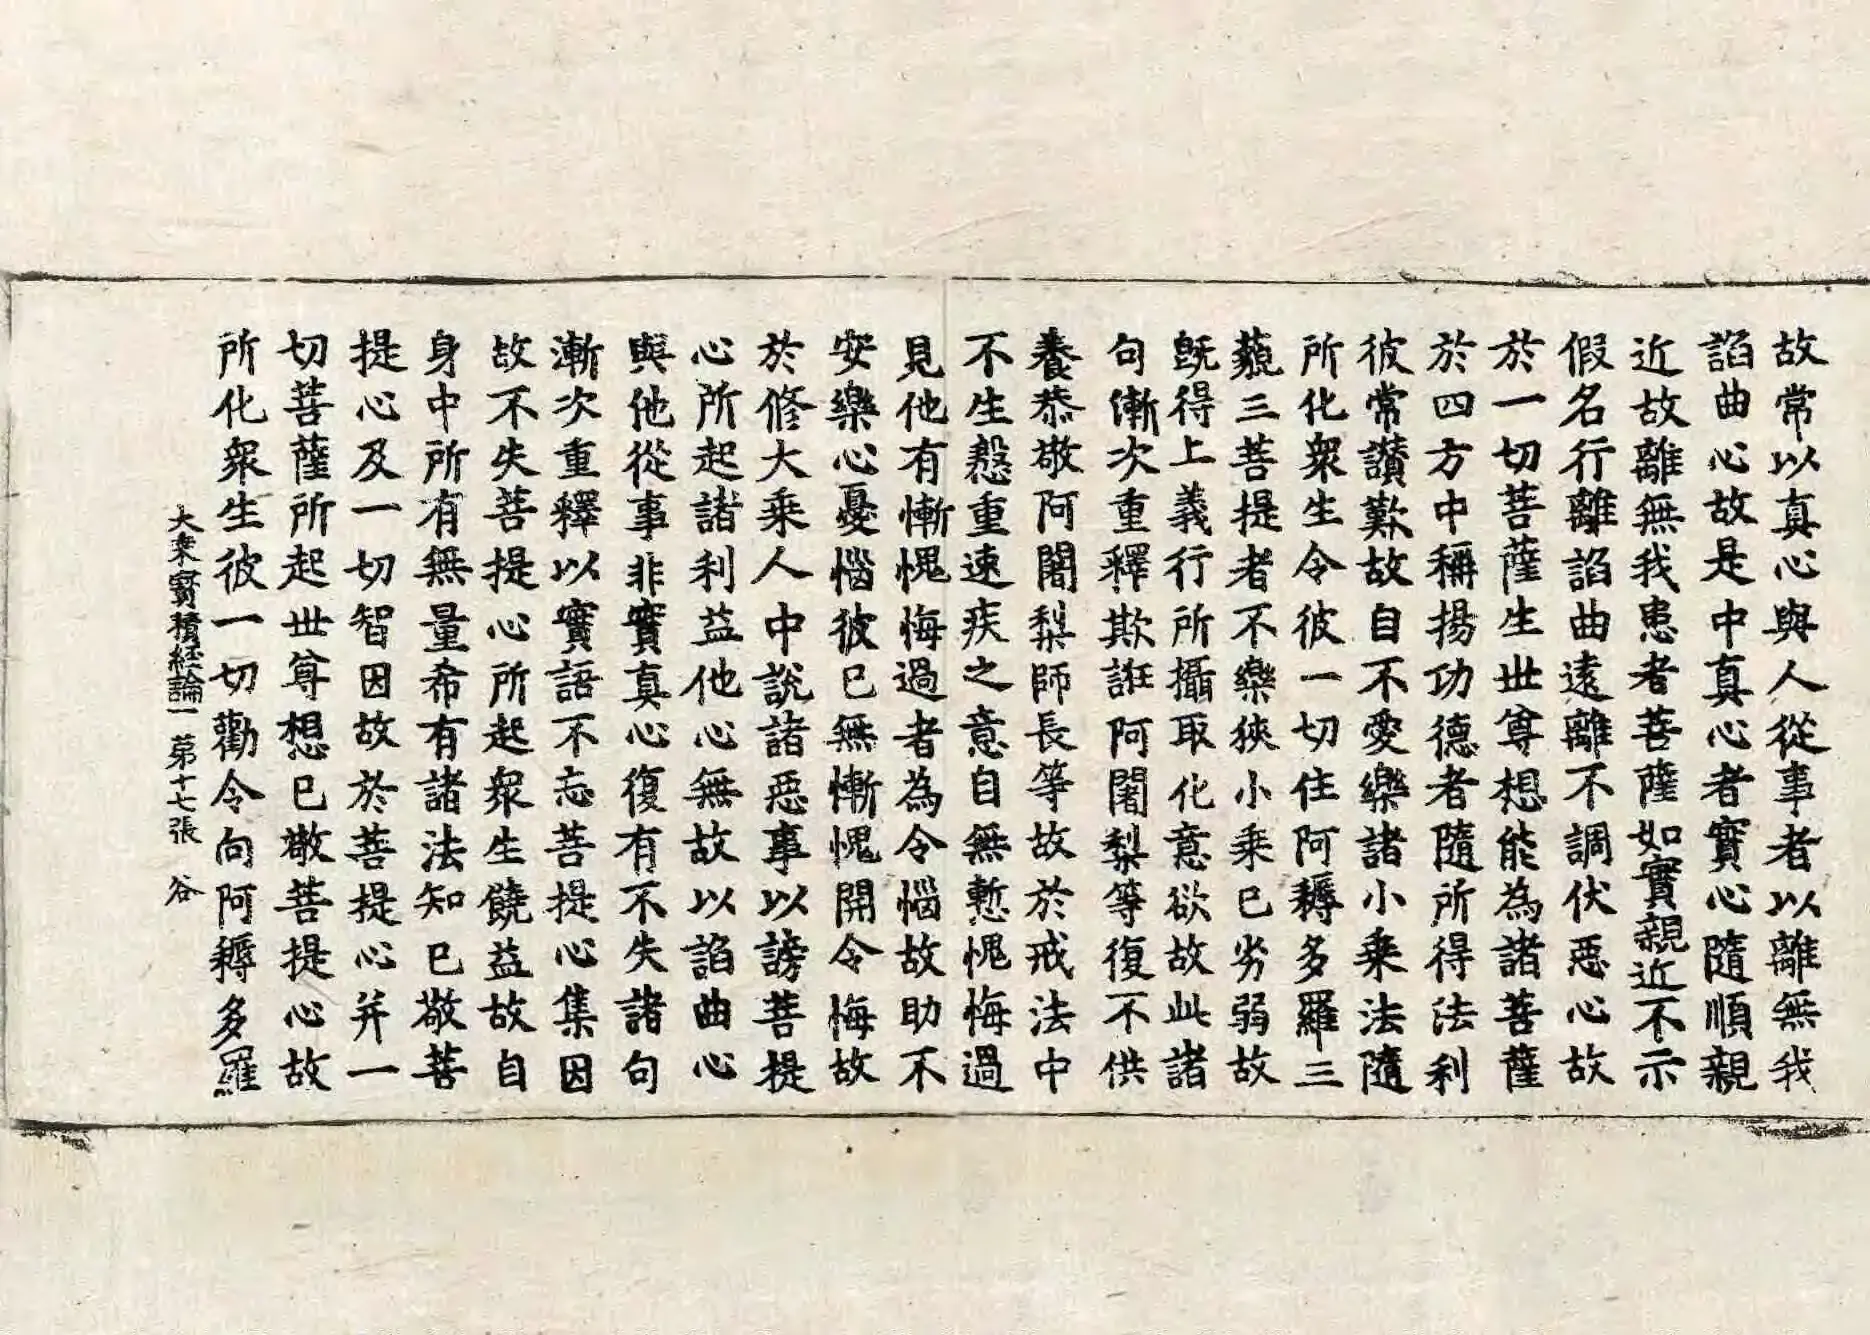 故常以真心與人從事者以離無我
諂曲心故是中真心者實心隨順親
近故離無我患者菩薩如實親近不示
假名行離諂曲遠離不調伏惡心故
於一切菩薩生世尊想能為諸菩薩
於四方中稱揚功德者隨所得法利
彼常讃歎故自不愛樂諸小乘法隨
所化衆生令彼一切住阿耨多羅三
藐三菩提者不樂狹小乘已劣弱故
旣得上義行所攝取化意欲故此諸
句漸次重釋欺誑阿闍梨等復不供
養恭敬阿闍梨師長等故於戒法中
不生慇重速疾之意自無慙愧悔過
見他有慚愧悔過者為令惱故助不
安樂心憂惱彼已無慚愧開令悔故
於修大乘人中說諸惡事以謗菩提
心所起諸利益他心無故以諂曲心
與他從事非實真心復有不失諸句
漸次重釋以實語不忘菩提心集因
故不失菩提心所起衆生饒益故自
身中所有無量希有諸法知已敬菩
提心及一切智因故於菩提心并一
切菩薩所起世尊想已敬菩提心故
所化衆生彼一切勸令向阿耨多羅
大乘寶積經論一 第十七張 谷